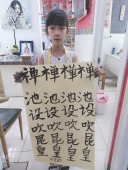 禅池设吹昆皇
禅池设吹昆皇
禅池设吹昆皇
禅池设吹昆皇